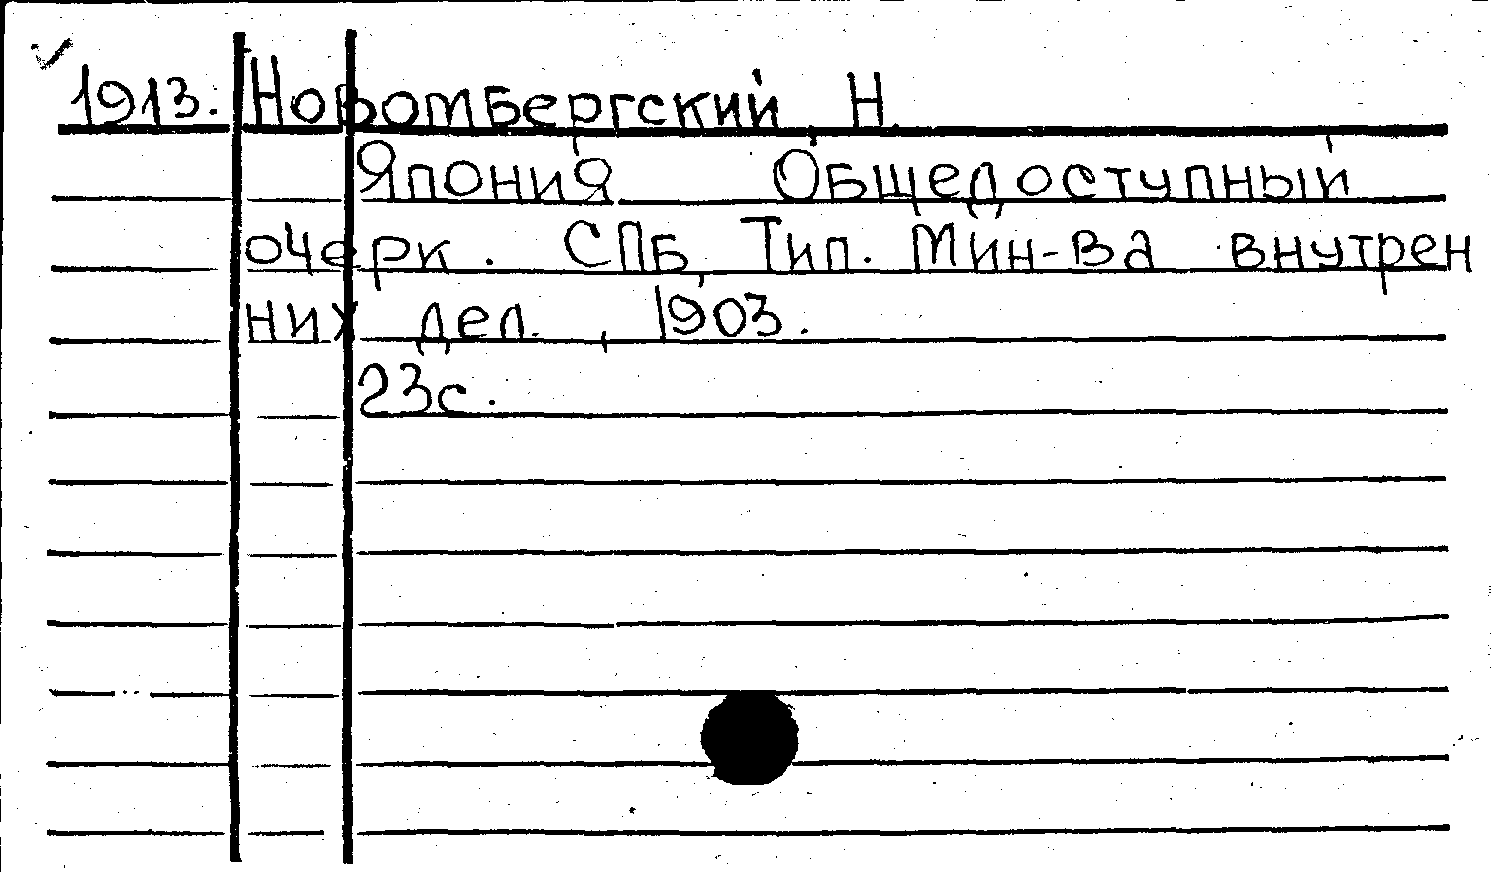 1913. Новомбергский, Н.
Япония Общедоступный
очерк. СПБ, Тип. Мин-ва внутрен
них дел., 1903.
23с.